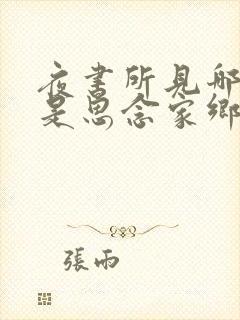 夜书所见哪
是思念家乡
張雨